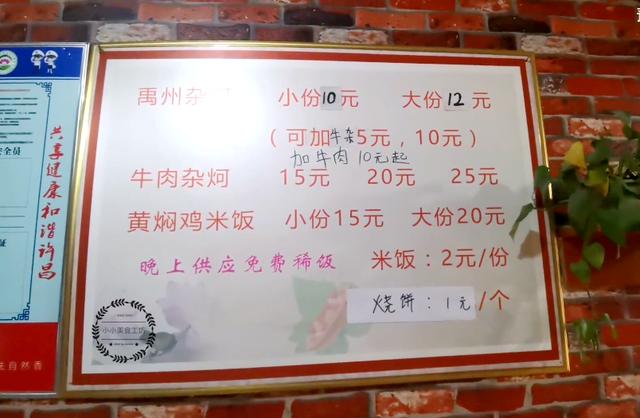 禹州杂 小份10元 大份12元
（可加牛杂5元，10元）
加牛肉10元起
牛肉杂炣 15元 20元 25元
黄焖鸡米饭 小份15元 大份20元
晚上供应免费稀饭 米饭：2元/份
烧饼：1元/个
小小美食工坊
共享健康和谐许昌
自然香